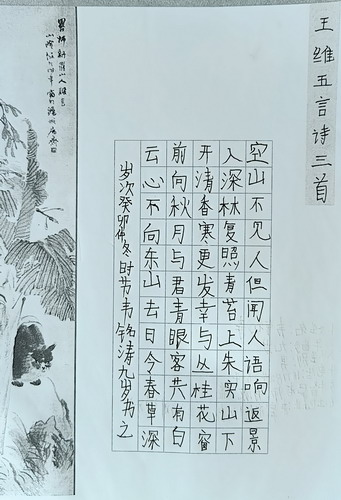 王维五言诗三首
空山不见人但闻人语响返景
入深林复照青苔上朱实山下
开清香寒更发幸与丛桂花窗
前向秋月与君青眼客共有白
云心不向东山去日令春草深
岁次癸卯仲冬时节韦铭涛九岁书之